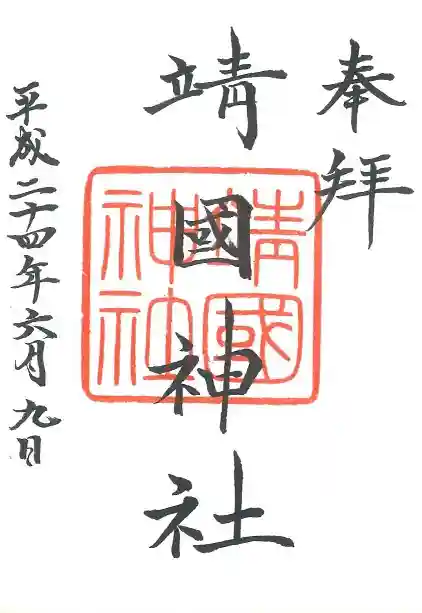 奉拝
靖國神社
靖國
神社
平成二十四年六月九日